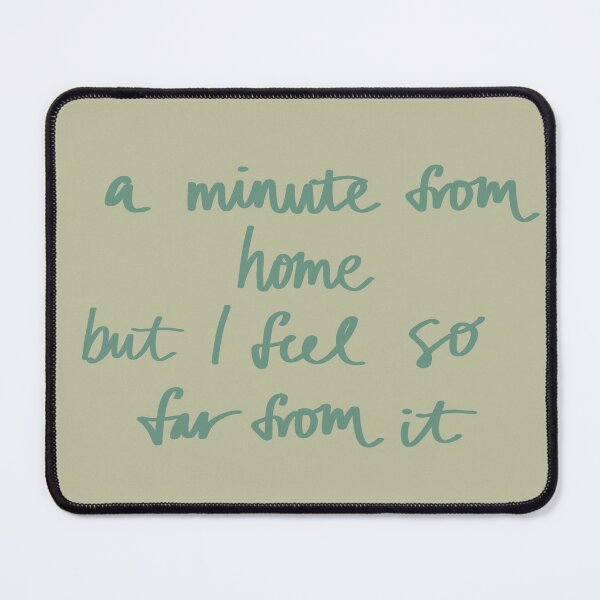 a minute from
home
but I feel so
far from it